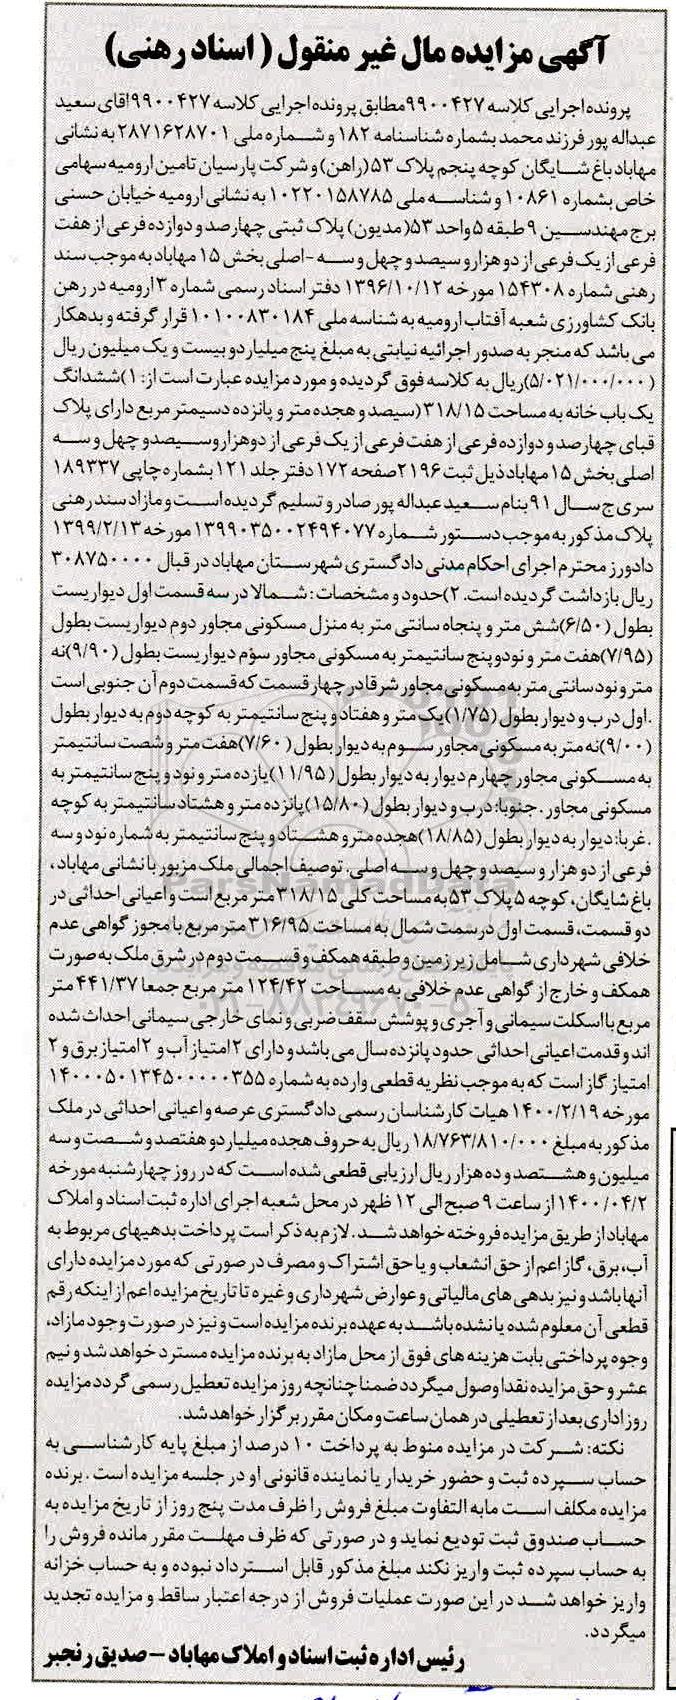 آگهی مزایده مال غیر منقول ( اسناد رهنی)
پرونده اجرایی کلاسه ۹۹۰۰۴۲۷مطابق پرونده اجرایی کلاسه ۹۹۰۰۴۲۷اقای سعید
عبداله پور فرزند محمد بشماره شناسنامه ۱۸۲ و شماره ملی ۲۸۷۱۶۲۸۷۰۱ به نشانی
مهاباد باغ شایگان کوچه پنجم پلاک ۵۳(راهن) و شرکت پارسیان تامین ارومیه سهامی
خاص بشماره ۱۰۸۶۱ و شناسه ملی ۱۰۲۲۰۱۵۸۷۸۵ به نشانی ارومیه خیابان حسنی
برج مهندسین ۹ طبقه ۵ واحد ۵۳( مدیون) پلاک ثبتی چهارصد و دوازده فرعی از هفت
فرعی از یک فرعی از دو هزار و سیصد و چهل و سه -اصلی بخش ۱۵ مهاباد به موجب سند
رهنی شماره ۱۵۴۳۰۸ مورخه ۱۳۹۶/۱۰/۱۲ دفتر اسناد رسمی شماره ۳ ارومیه در رهن
بانک کشاورزی شعبه آفتاب ارومیه به شناسه ملی ۱۰۱۰۰۸۳۰۱۸۴ قرار گرفته و بدهکار
می باشد که منجر به صدور اجرائیه نیابتی به مبلغ پنج میلیارد و بیست و یک میلیون ریال
(۵/۰۲۱/۰۰۰/۰۰۰)ریال به کلاسه فوق گردیده و مورد مزایده عبارت است از: ۱)ششدانگ
یک باب خانه به مساحت ۳۱۸/۱۵(سیصد و هجده متر و پانزده دسیمتر مربع دارای پلاک
قبای چهارصد و دوازده فرعی از هفت فرعی از یک فرعی از دوهزار وسیصد و چهل و سه
اصلی بخش ۱۵ مهاباد ذیل ثبت ۲۱۹۶ صفحه ۱۷۲ دفتر جلد ۱۲۱ بشماره چاپی ۱۸۹۳۳۷
سری ج سال ۹۱ بنام سعید عبداله پور صادر و تسلیم گردیده است و مازاد سند رهنی
پلاک مذکور به موجب دستور شماره ۱۳۹۹۰۳۵۰۰۲۴۹۴۰۷۷ مورخه ۱۳۹۹/۲/۱۳
دادورز محترم اجرای احکام مدنی دادگستری شهرستان مهاباد در قبال ۳۰۸۷۵۰۰۰۰
ریال بازداشت گردیده است. ۲)حدود و مشخصات : شمالا در سه قسمت اول دیواریست
بطول (۶/۵۰)شش متر و پنجاه سانتی متر به منزل مسکونی مجاور دوم دیواریست بطول
(۷/۹۵)هفت متر و نود و پنج سانتیمتر به مسکونی مجاور سوم دیواریست بطول (۹/۹۰)نه
متر و نود سانتی متر به مسکونی مجاور شرقا در چهار قسمت که قسمت دوم آن جنوبی است
.اول درب و دیوار بطول (۱/۷۵) یک متر و هفتاد و پنج سانتیمتر به کوچه دوم به دیوار بطول
(۹/۰۰)نه متر به مسکونی مجاور سوم به دیوار بطول (۷/۶۰)هفت متر و شصت سانتیمتر
به مسکونی مجاور چهارم دیوار به دیوار بطول (۱۱/۹۵) یازده متر و نود و پنج سانتیمتر به
مسکونی مجاور . جنوبا: درب و دیوار بطول (۱۵/۸۰) پانزده متر و هشتاد سانتیمتر به کوچه
.غربا: دیوار به دیوار بطول (۱۸/۸۵) هجده متر و هشتاد و پنج سانتیمتر به شماره نود و سه
فرعی از دو هزار و سیصد و چهل و سه اصلی. توصیف اجمالی ملک مزبور با نشانی مهاباد ،
باغ شایگان، کوچه ۵ پلاک ۵۳ به مساحت کلی ۳۱۸/۱۵ متر مربع است و اعیانی احداثی در
دو قسمت، قسمت اول در سمت شمال به مساحت ۳۱۶/۹۵ متر مربع با مجوز گواهی عدم
خلافی شهرداری شامل زیر زمین و طبقه همکف و قسمت دوم در شرق ملک به صورت
همکف و خارج از گواهی عدم خلافی به مساحت ۱۲۴/۴۲ متر مربع جمعا ۴۴۱/۳۷ متر
مربع با اسکلت سیمانی و آجری و پوشش سقف ضربی و نمای خارجی سیمانی احداث شده
اند و قدمت اعیانی احداثی حدود پانزده سال می باشد و دارای ۲ امتیاز آب و ۲ امتیاز برق و ۲
امتیاز گاز است که به موجب نظریه قطعی وارده به شماره ۱۴۰۰۰۵۰۱۳۴۵۰۰۰۰۰۳۵۵
مورخه ۱۴۰۰/۲/۱۹ هیات کارشناسان رسمی دادگستری عرصه و اعیانی احداثی در ملک
مذکور به مبلغ ۱۸/۷۶۳/۸۱۰/۰۰۰ ریال به حروف هجده میلیارد و هفتصد و شصت و سه
میلیون و هشتصد و ده هزار ریال ارزیابی قطعی شده است که در روز چهارشنبه مورخه
۱۴۰۰/۰۴/۲ از ساعت ۹ صبح الی ۱۲ ظهر در محل شعبه اجرای اداره ثبت اسناد و املاک
مهاباد از طریق مزایده فروخته خواهد شد . لازم به ذکر است پرداخت بدهیهای مربوط به
آب، برق، گاز اعم از حق انشعاب و یا حق اشتراک و مصرف در صورتی که مورد مزایده دارای
آنها باشد و نیز بدهی های مالیاتی و عوارض شهرداری و غیره تا تاریخ مزایده اعم از اینکه رقم
قطعی آن معلوم شده یا نشده باشد به عهده برنده مزایده است و نیز در صورت وجود مازاد،
وجوه پرداختی بابت هزینه های فوق از محل مازاد به برنده مزایده مسترد خواهد شد و نیم
عشر و حق مزایده نقدا وصول میگردد ضمنا چنانچه روز مزایده تعطیل رسمی گردد مزایده
روز اداری بعد از تعطیلی در همان ساعت و مکان مقرر برگزار خواهد شد.
نکته: شرکت در مزایده منوط به پرداخت ۱۰ درصد از مبلغ پایه کارشناسی به
حساب سپرده ثبت و حضور خریدار یا نماینده قانونی او در جلسه مزایده است . برنده
مزایده مکلف است مابه التفاوت مبلغ فروش را ظرف مدت پنج روز از تاریخ مزایده به
حساب صندوق ثبت تودیع نماید و در صورتی که ظرف مهلت مقرر مانده فروش را
به حساب سپرده ثبت واریز نکند مبلغ مذکور قابل استرداد نبوده و به حساب خزانه
واریز خواهد شد در این صورت عملیات فروش از درجه اعتبار ساقط و مزایده تجدید
میگردد.
رئیس اداره ثبت اسناد و املاک مهاباد - صدیق رنجبر